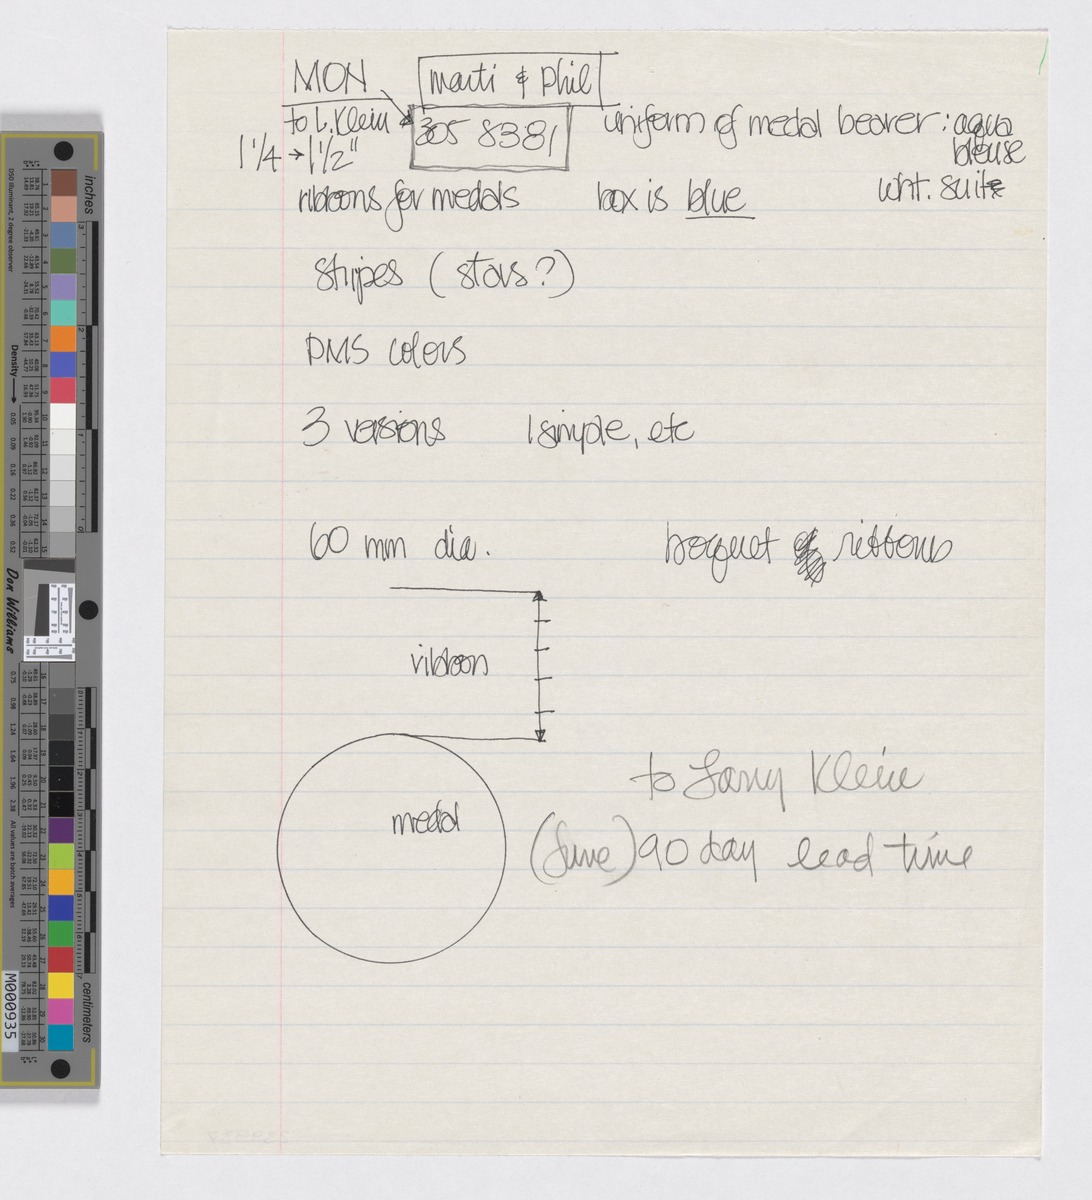 MON
marti & phil
to L. Klein
305 8381
uniform of medal bearer: aqua
blouse
1 1/4 → 1 1/2"
wht. suit
ribbons for medals
box is blue
stripes (stars?)
PMS colors
3 versions
1 simple, etc
60 mm dia.
boquet of ribbons
ribbon
medal
to Larry Klein
(June) 90 day lead time
inches
Density
Don Williams
All values are batch averages
D50 Illuminant, 2 degree observer
M000935
centimeters